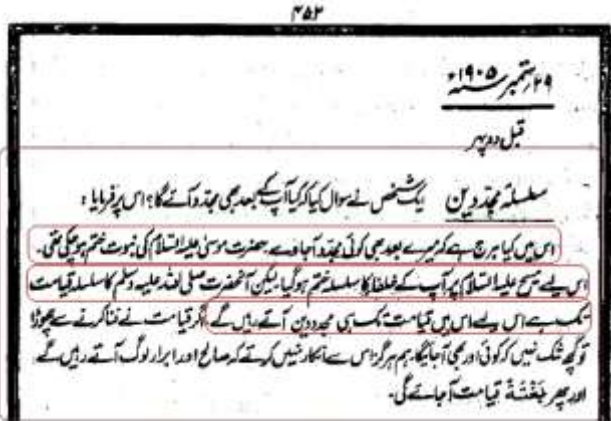 ۴۵۲
۲۹ ستمبر ۱۹۰۵ء
قبل دوپہر
سلسلۂ مجددین ایک شخص نے سوال کیا کہ کیا آپ کے بعد بھی مجدد آئے گا؟ اس پر فرمایا :
اس میں کیا ہرج ہے کہ میرے بعد بھی کوئی مجدد آجاوے۔ حضرت موسیٰ علیہ السلام کی نبوت ختم ہوچکی تھی۔
اس لیے مسیح علیہ السلام پر آپ کے خلفاء کا سلسلہ ختم ہوگیا لیکن آنحضرت صلی اللہ علیہ وسلم کا سلسلہ قیامت
تک ہے اس لیے اس میں قیامت تک ہی مجددین آتے رہیں گے اگر قیامت نے فنا کرنے سے چھوڑا
تو کچھ شک نہیں کہ کوئی اور بھی آجائیگا، ہم ہرگز اس سے انکار نہیں کرتے کہ صالح اور ابرار لوگ آتے رہیں گے
اور پھر بَغْتَةً قیامت آجائے گی۔